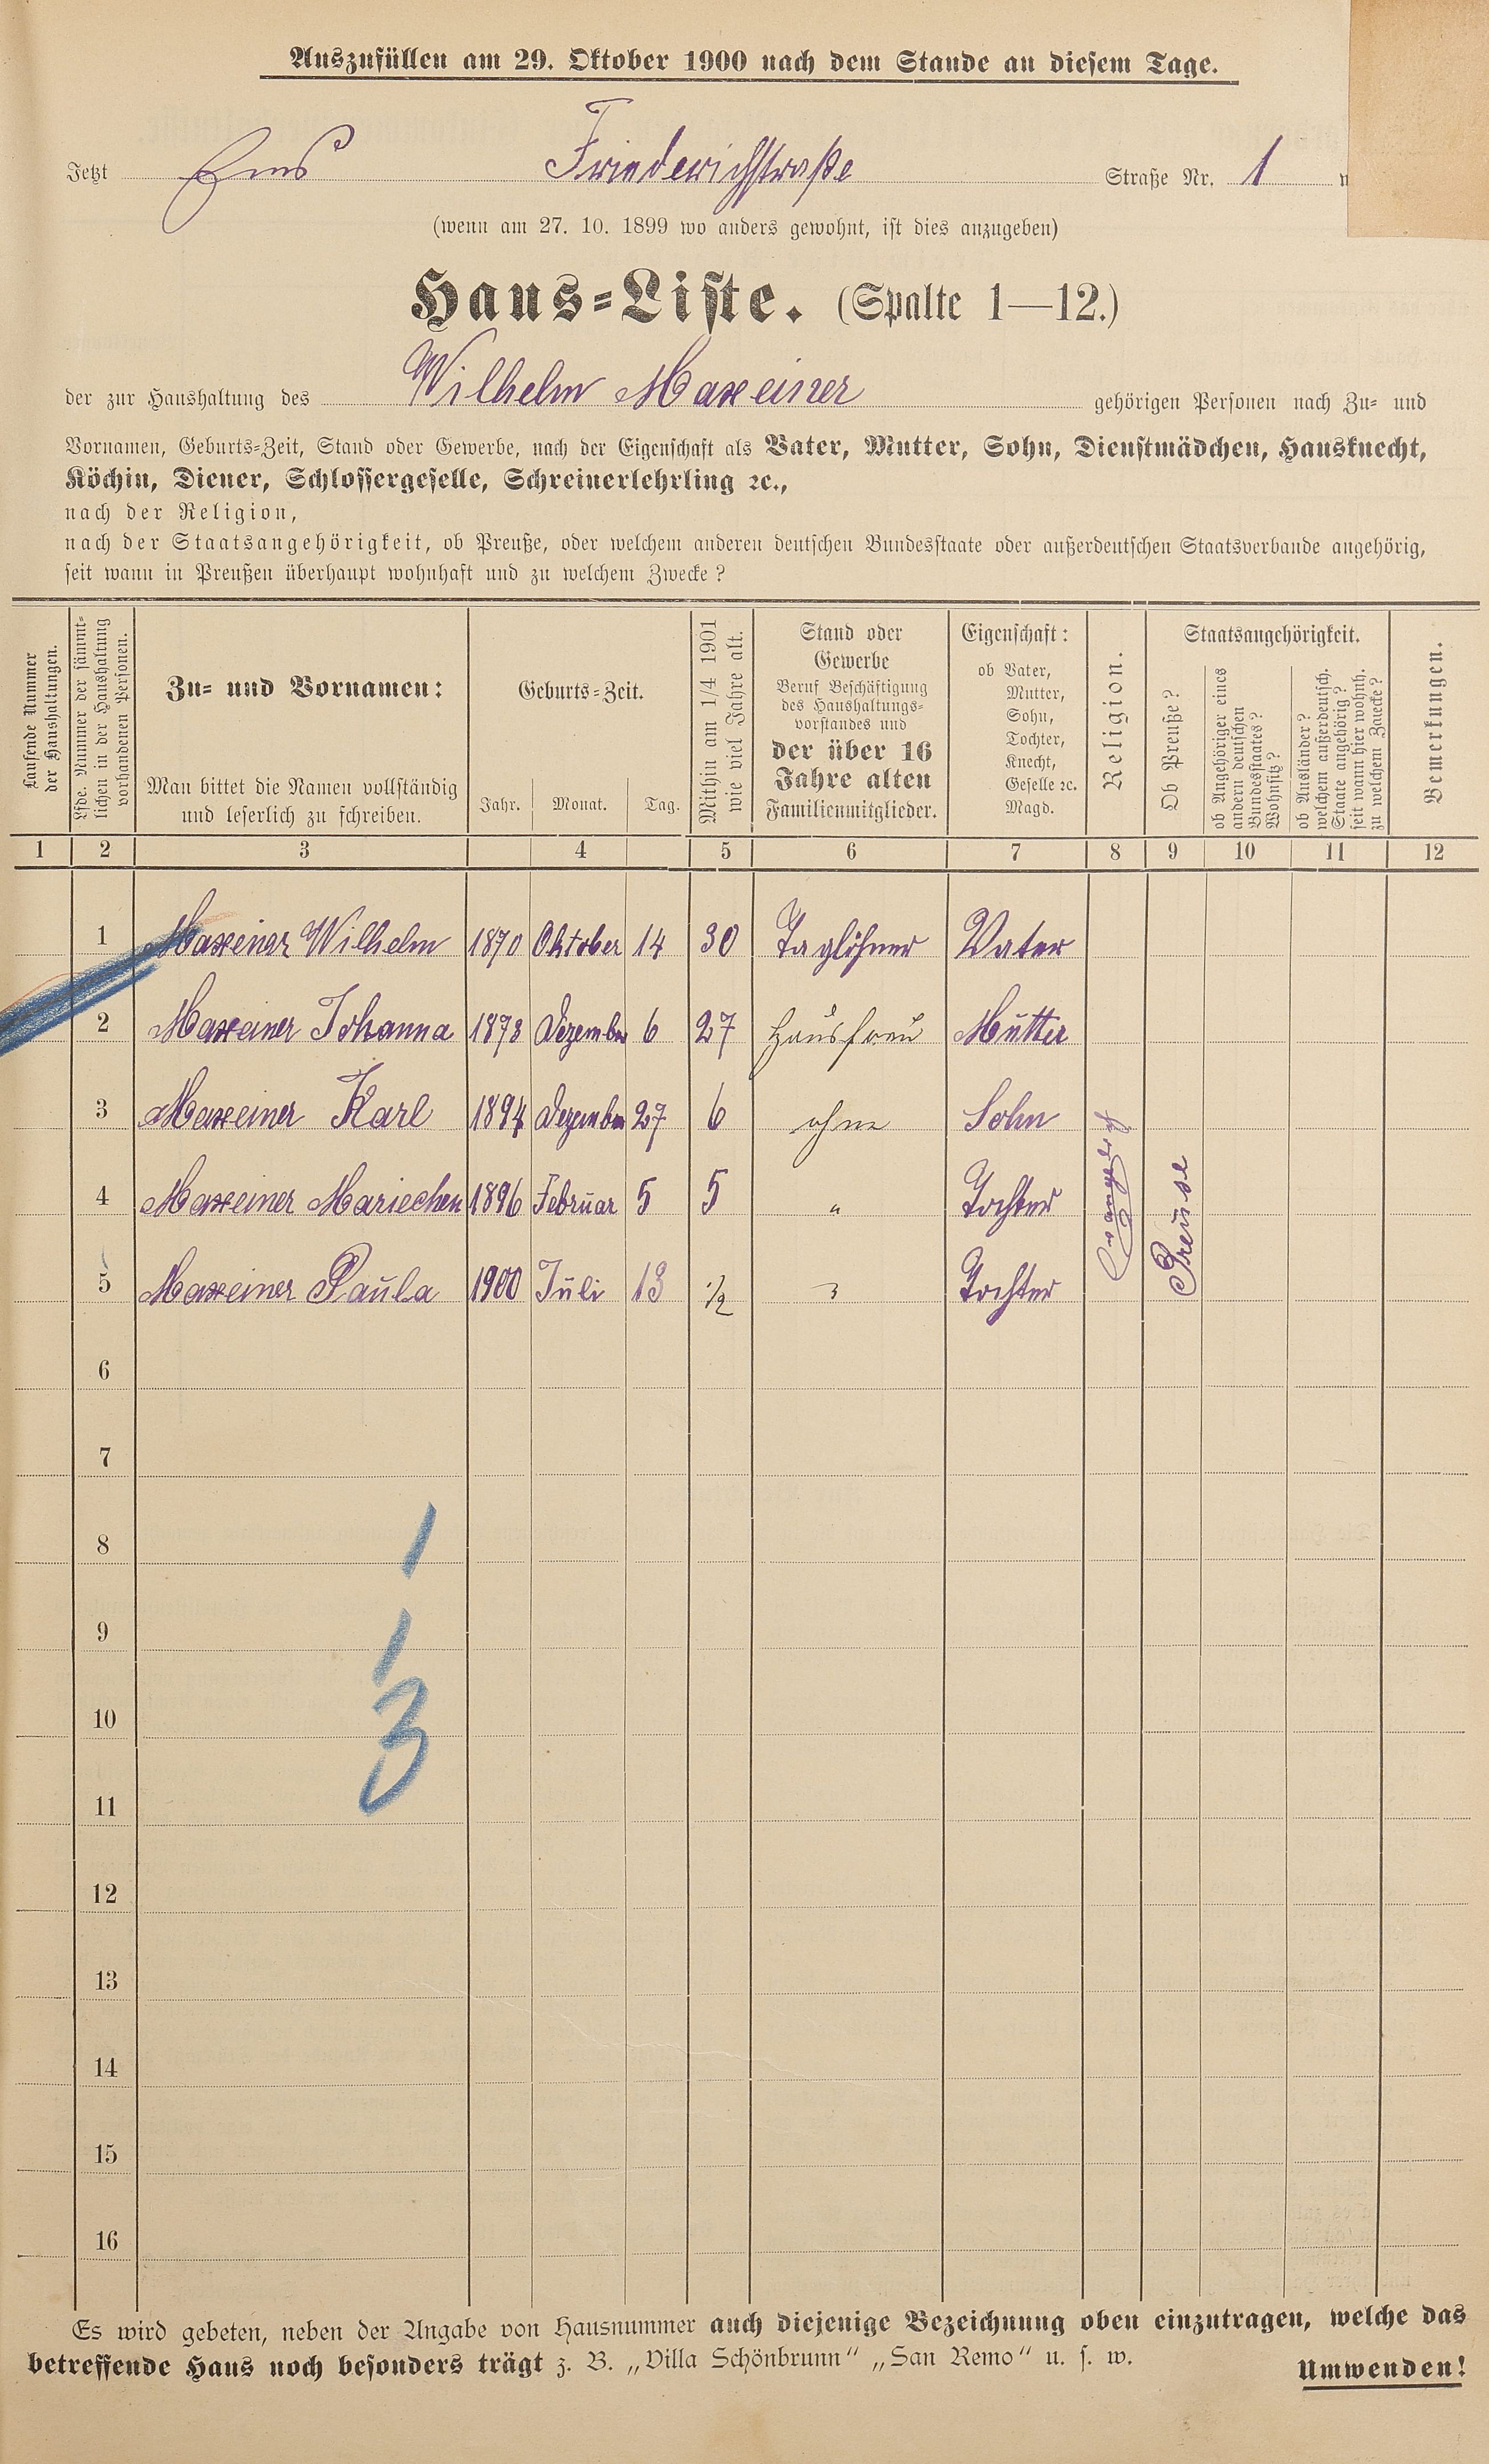 Auszufüllen am 29. Oktober 1900 nach dem Stande an diesem Tage.
Jetzt Ems Friederichstraße Straße Nr. 1
(wenn am 27. 10. 1899 wo anders gewohnt, ist dies anzugeben)
Haus-Liste. (Spalte 1—12.)
der zur Haushaltung des Wilhelm Maxeiner gehörigen Personen nach Zu- und
Vornamen, Geburts-Zeit, Stand oder Gewerbe, nach der Eigenschaft als Vater, Mutter, Sohn, Dienstmädchen, Hausknecht,
Köchin, Diener, Schlossergeselle, Schreinerlehrling ꝛc.,
nach der Religion,
nach der Staatsangehörigkeit, ob Preuße, oder welchem anderen deutschen Bundesstaate oder außerdeutschen Staatsverbande angehörig,
seit wann in Preußen überhaupt wohnhaft und zu welchem Zwecke?
Laufende Nummer
der Haushaltungen.
Lfde. Nummer der sämmt-
lichen in der Haushaltung
vorhandenen Personen.
Zu- und Vornamen:
Man bittet die Namen vollständig
und leserlich zu schreiben.
Geburts-Zeit.
Jahr. Monat. Tag.
Mithin am 1/4 1901
wie viel Jahre alt.
Stand oder
Gewerbe
Beruf Beschäftigung
des Haushaltungs-
vorstandes und
der über 16
Jahre alten
Familienmitglieder.
Eigenschaft:
ob Vater,
Mutter,
Sohn,
Tochter,
Knecht,
Geselle ꝛc.
Magd.
Religion.
Staatsangehörigkeit.
Ob Preuße?
ob Angehöriger eines
andern deutschen
Bundesstaates?
Wohnsitz?
ob Ausländer?
welchem außerdeutsch.
Staate angehörig?
seit wann hier wohnh.
zu welchem Zwecke?
Bemerkungen.
1 2 3 4 5 6 7 8 9 10 11 12
1 Maxeiner Wilhelm 1870 Oktober 14 30 Taglöhner Vater
2 Maxeiner Johanna 1873 Dezember 6 27 Hausfrau Mutter
3 Maxeiner Karl 1894 Dezember 27 6 ohne Sohn
4 Maxeiner Mariechen 1896 Februar 5 5 " Tochter
5 Maxeiner Paula 1900 Juli 13 1/2 " Tochter
evangelisch
Preuse
6
7
8
1
9
1
10
3
11
12
13
14
15
16
Es wird gebeten, neben der Angabe von Hausnummer auch diejenige Bezeichnung oben einzutragen, welche das
betreffende Haus noch besonders trägt z. B. „Villa Schönbrunn“ „San Remo“ u. s. w.
Umwenden!